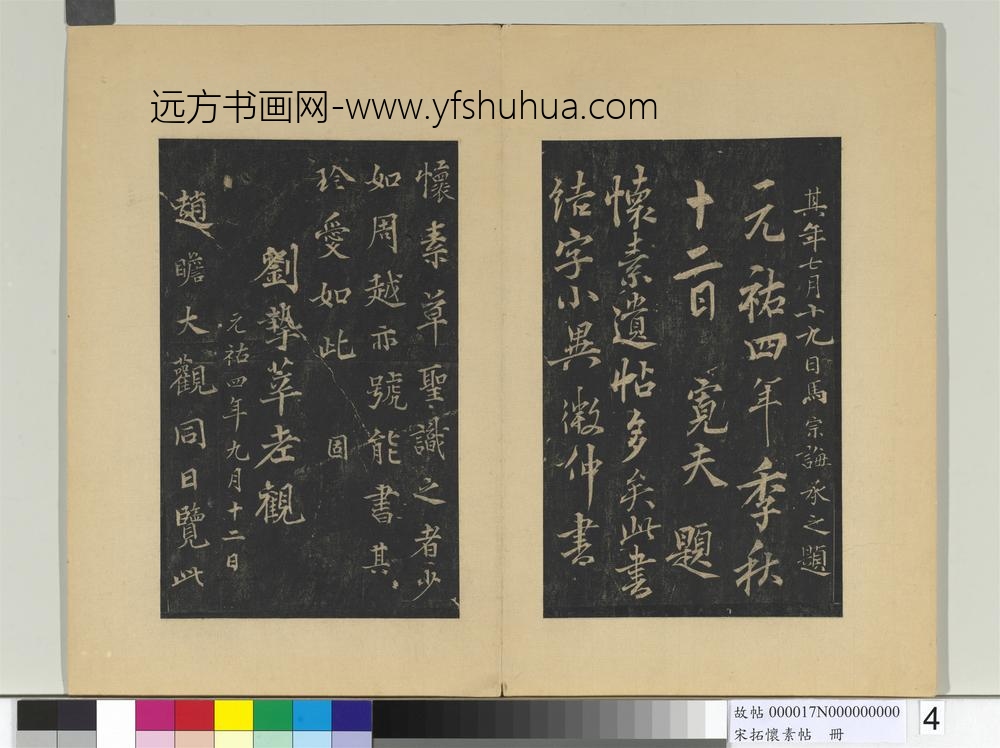 远方书画网-www.yfshuhua.com
其年七月十九日馬宗誨承之題
元祐四年季秋
十二日寬夫題
懷素遺帖多矣此書
结字小異微仲書
懷素草聖識之者少
如周越亦號能書其
珍愛如此固
劉摯莘老觀
元祐四年九月十二日
趙瞻大觀同日覽此
故帖 000017N000000000
宋拓懷素帖 冊
4